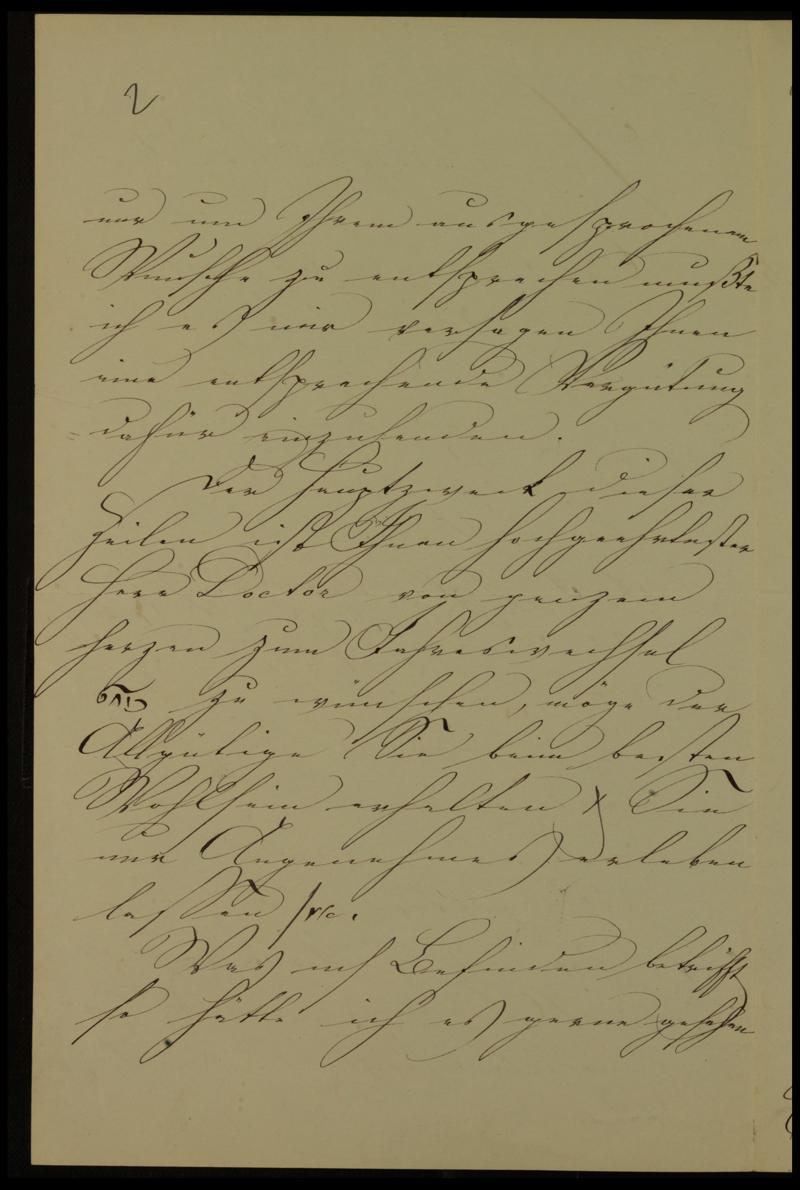 2
nur um Ihrem ausgesprochenen
Wunsche zu entsprechen mußte
ich es mir versagen Ihnen
eine entsprechende Vergütung
dafür einzusenden.
Der Hauptzweck dieser
Zeilen ist Ihnen hochgeehrtester
Herr Doctor von ganzem
Herzen zum Jahreswechsel
zu wünschen, möge der
Allgütige Sie beim besten
Wohlsein erhalten & Sie
nur Angenehmes erleben
lassen
Was m Befinden betrifft
so hätte ich es gerne gesehen